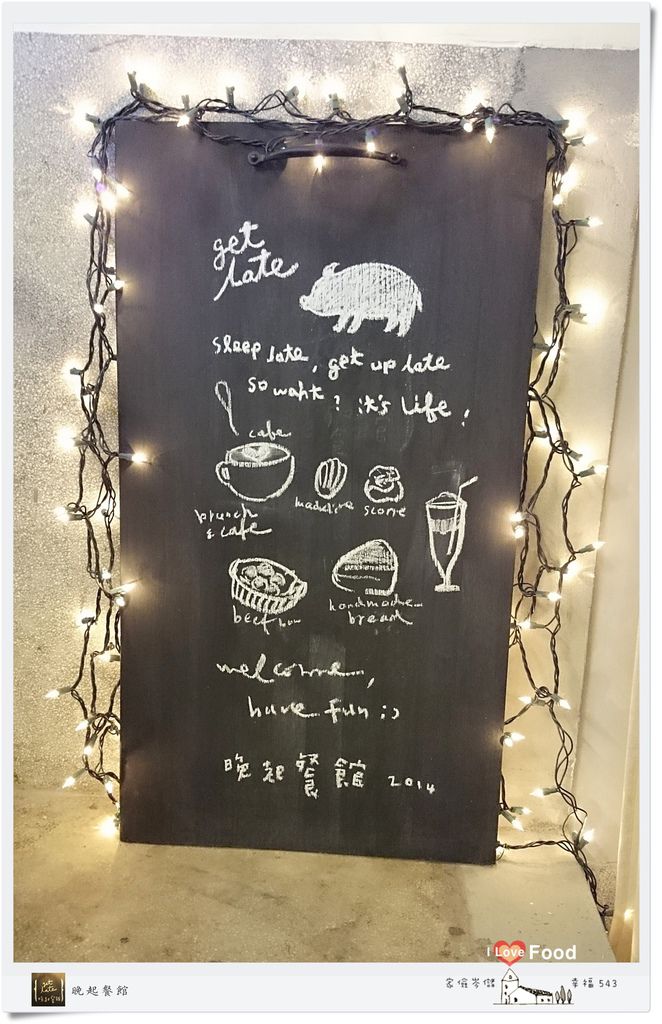 get
late
sleep late, get up late
so what? it's life!
cafe
brunch
& cafe
madeline
scone
beef
handmade
bread
welcome,
have fun :)
晚起餐館 2014
I Love Food
晚起餐館
家儷岑傑
幸福 543